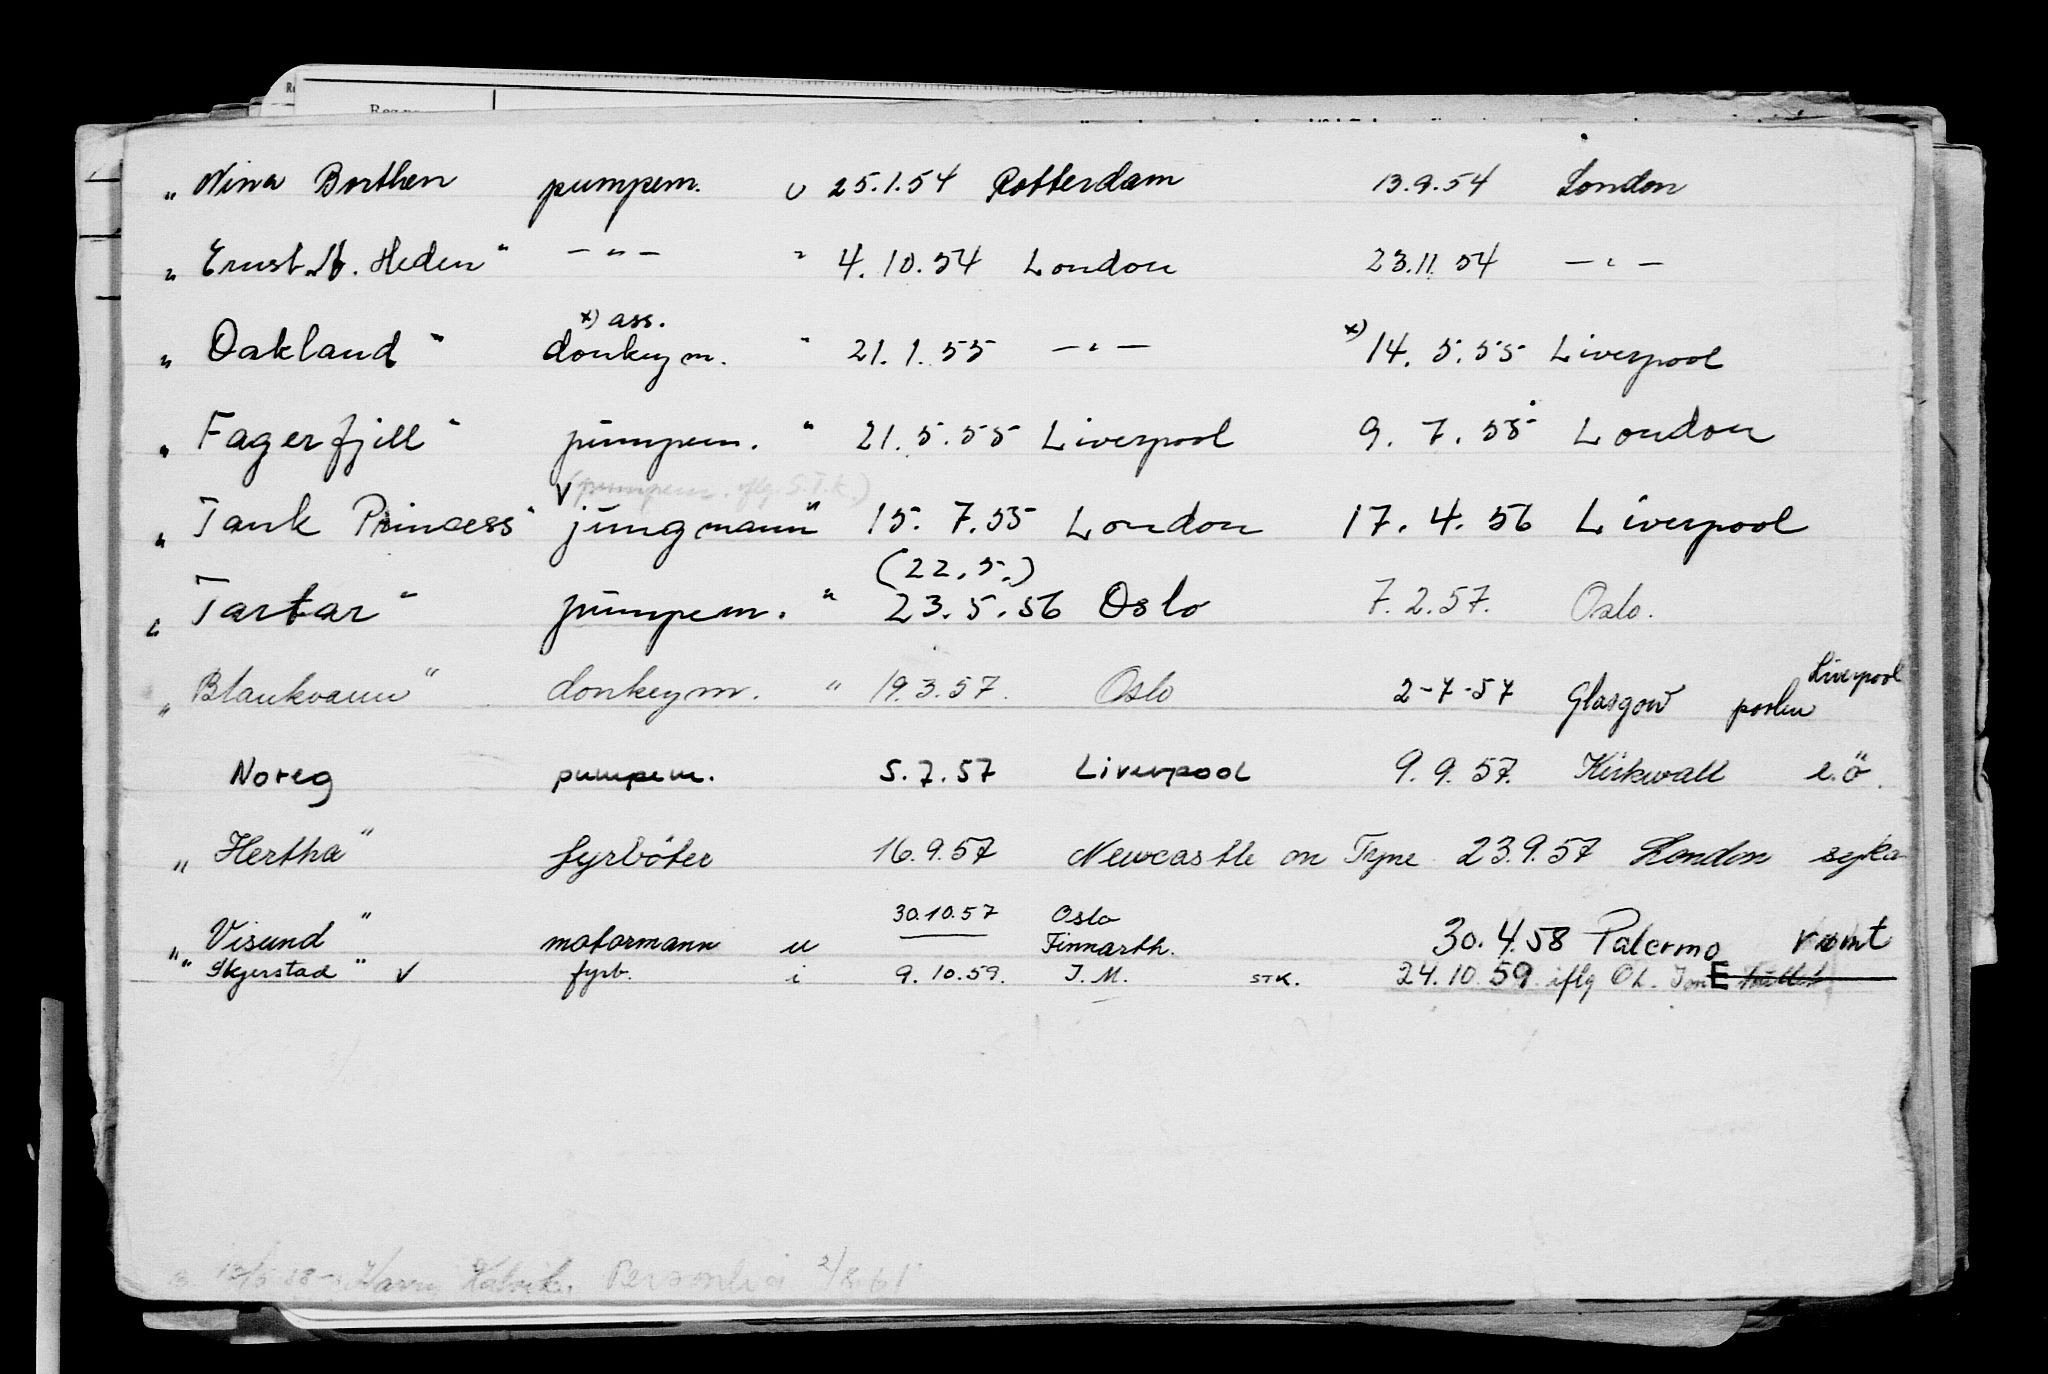 „ Nina Borthen pumpem. u 25.1.54 Rotterdam 13.9.54 London
„ Ernst A. Heden" — „ — " 4.10.54 London 23.11.54 — „ —
x) ass.
„ Oakland" donkeym. " 21.1.55 — „ — x) 14.5.55 Liverpool
„ Fagerfjell" pumpem. " 21.5.55 Liverpool 9.7.55 London
V (pumpem. iflg. S.T.K.)
„ Tank Princess" jungmann " 15.7.55 London 17.4.56 Liverpool
(22.5.)
„ Tartar" pumpem. " 23.5.56 Oslo 7.2.57. Oslo.
Liverpool
„ Blankvann" donkeym. " 19.3.57. Oslo 2-7-57 Glasgow
Noreg pumpem. 5.7.57 Liverpool 9.9.57. Kirkwall e.ö.
„ Hertha" fyrböter 16.9.57 Newcastle on Tyne 23.9.57 London syka
30.10.57 Oslo
„ Visund" motormann u Finnarth. 30.4.58 Palermo rømt
„ Skjerstad" V fyrb. i 9.10.59. I.M. STK. 24.10.59 iflg
Harry Personlia